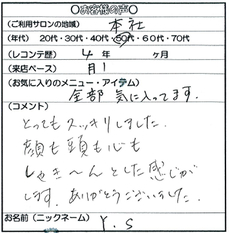 ○お客様の声○
（ご利用サロンの地域） 本社
（年代） 20代・30代・40代・50代・60代・70代
（レコンテ歴） 4 年 ヶ月
（来店ペース） 月1
（お気に入りのメニュー・アイテム）
全部 気に入ってます.
（コメント）
とってもスッキリしました.
顔も頭も心も
しゃき〜んとした感じが
します. ありがとうございました.
お名前（ニックネーム） Y.S